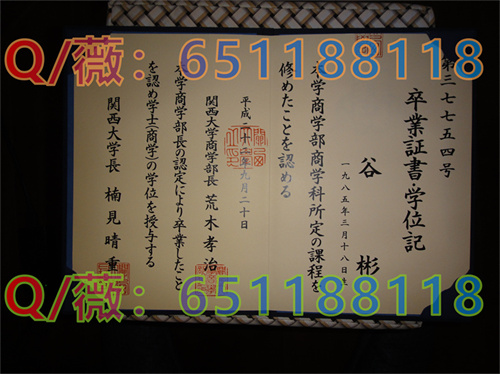 Q/薇：651188118
第三七七五四号
卒業証書・学位記
谷　彬
一九八五年三月十八日生
本学商学部商学科所定の課程を
修めたことを認める
平成二十六年九月二十日
関西大学商学部長　荒木孝治
本学商学部長の認定により卒業したこと
を認め学士（商学）の学位を授与する
関西大学長　楠見晴重
Q/薇：651188118